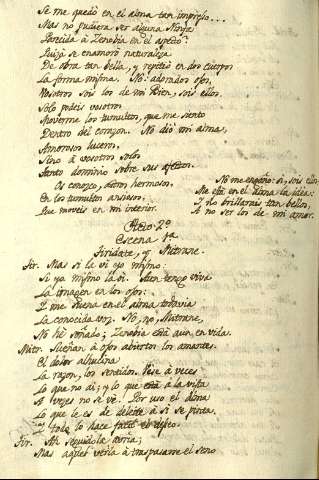 Se me quedó en el alma tan impreso...
Mas no pudiera ser alguna Ninfa
Parecida á Zenobia en el aspecto?
Quizá se enamoró naturaleza
De obra tan bella, y repitió en dos cuerpos
La forma misma. No: adorados ojos,
Vosotros sois los de mi bien, sois ellos.
Sólo podéis vosotros
Moverme los tumultos, que me siento
Dentro del corazon. No dió mi alma,
Amorosos luceros,
Sino á vosotros solos
Tanto dominio sobre sus afectos.
Os conozco, astros hermosos,
En los tumultos ansiosos,
Que moveis en mi interior.
No me engaño: si, sois ellos
Me está en el alma la idea:
Y no brillarais tan bellos,
A no ser los de mi amor.
Acto 2º
Escena 1ª
Tiridate, y Mitrane.
Tir. Mas si la vi yo mismo:
Si yo mismo la oí. Aun tengo viva
La imagen en los ojos:
Y me suena en el alma todavia
La conocida voz. No, no, Mitrane,
No hé soñado; Zenobia está aun en vida.
Mitr. Sueñan á ojos abiertos los amantes.
El dolor alucina
La razon, los sentidos. Vese á veces
Lo que no ai; y lo que está á la vista
A veces no se vé. Por uso el alma
Lo que le es de deleite á si se pinta.
Y todo lo hace facil el deseo.
Tir. Ah seguidola avria;
Mas aquel verla á traspasarse el seno